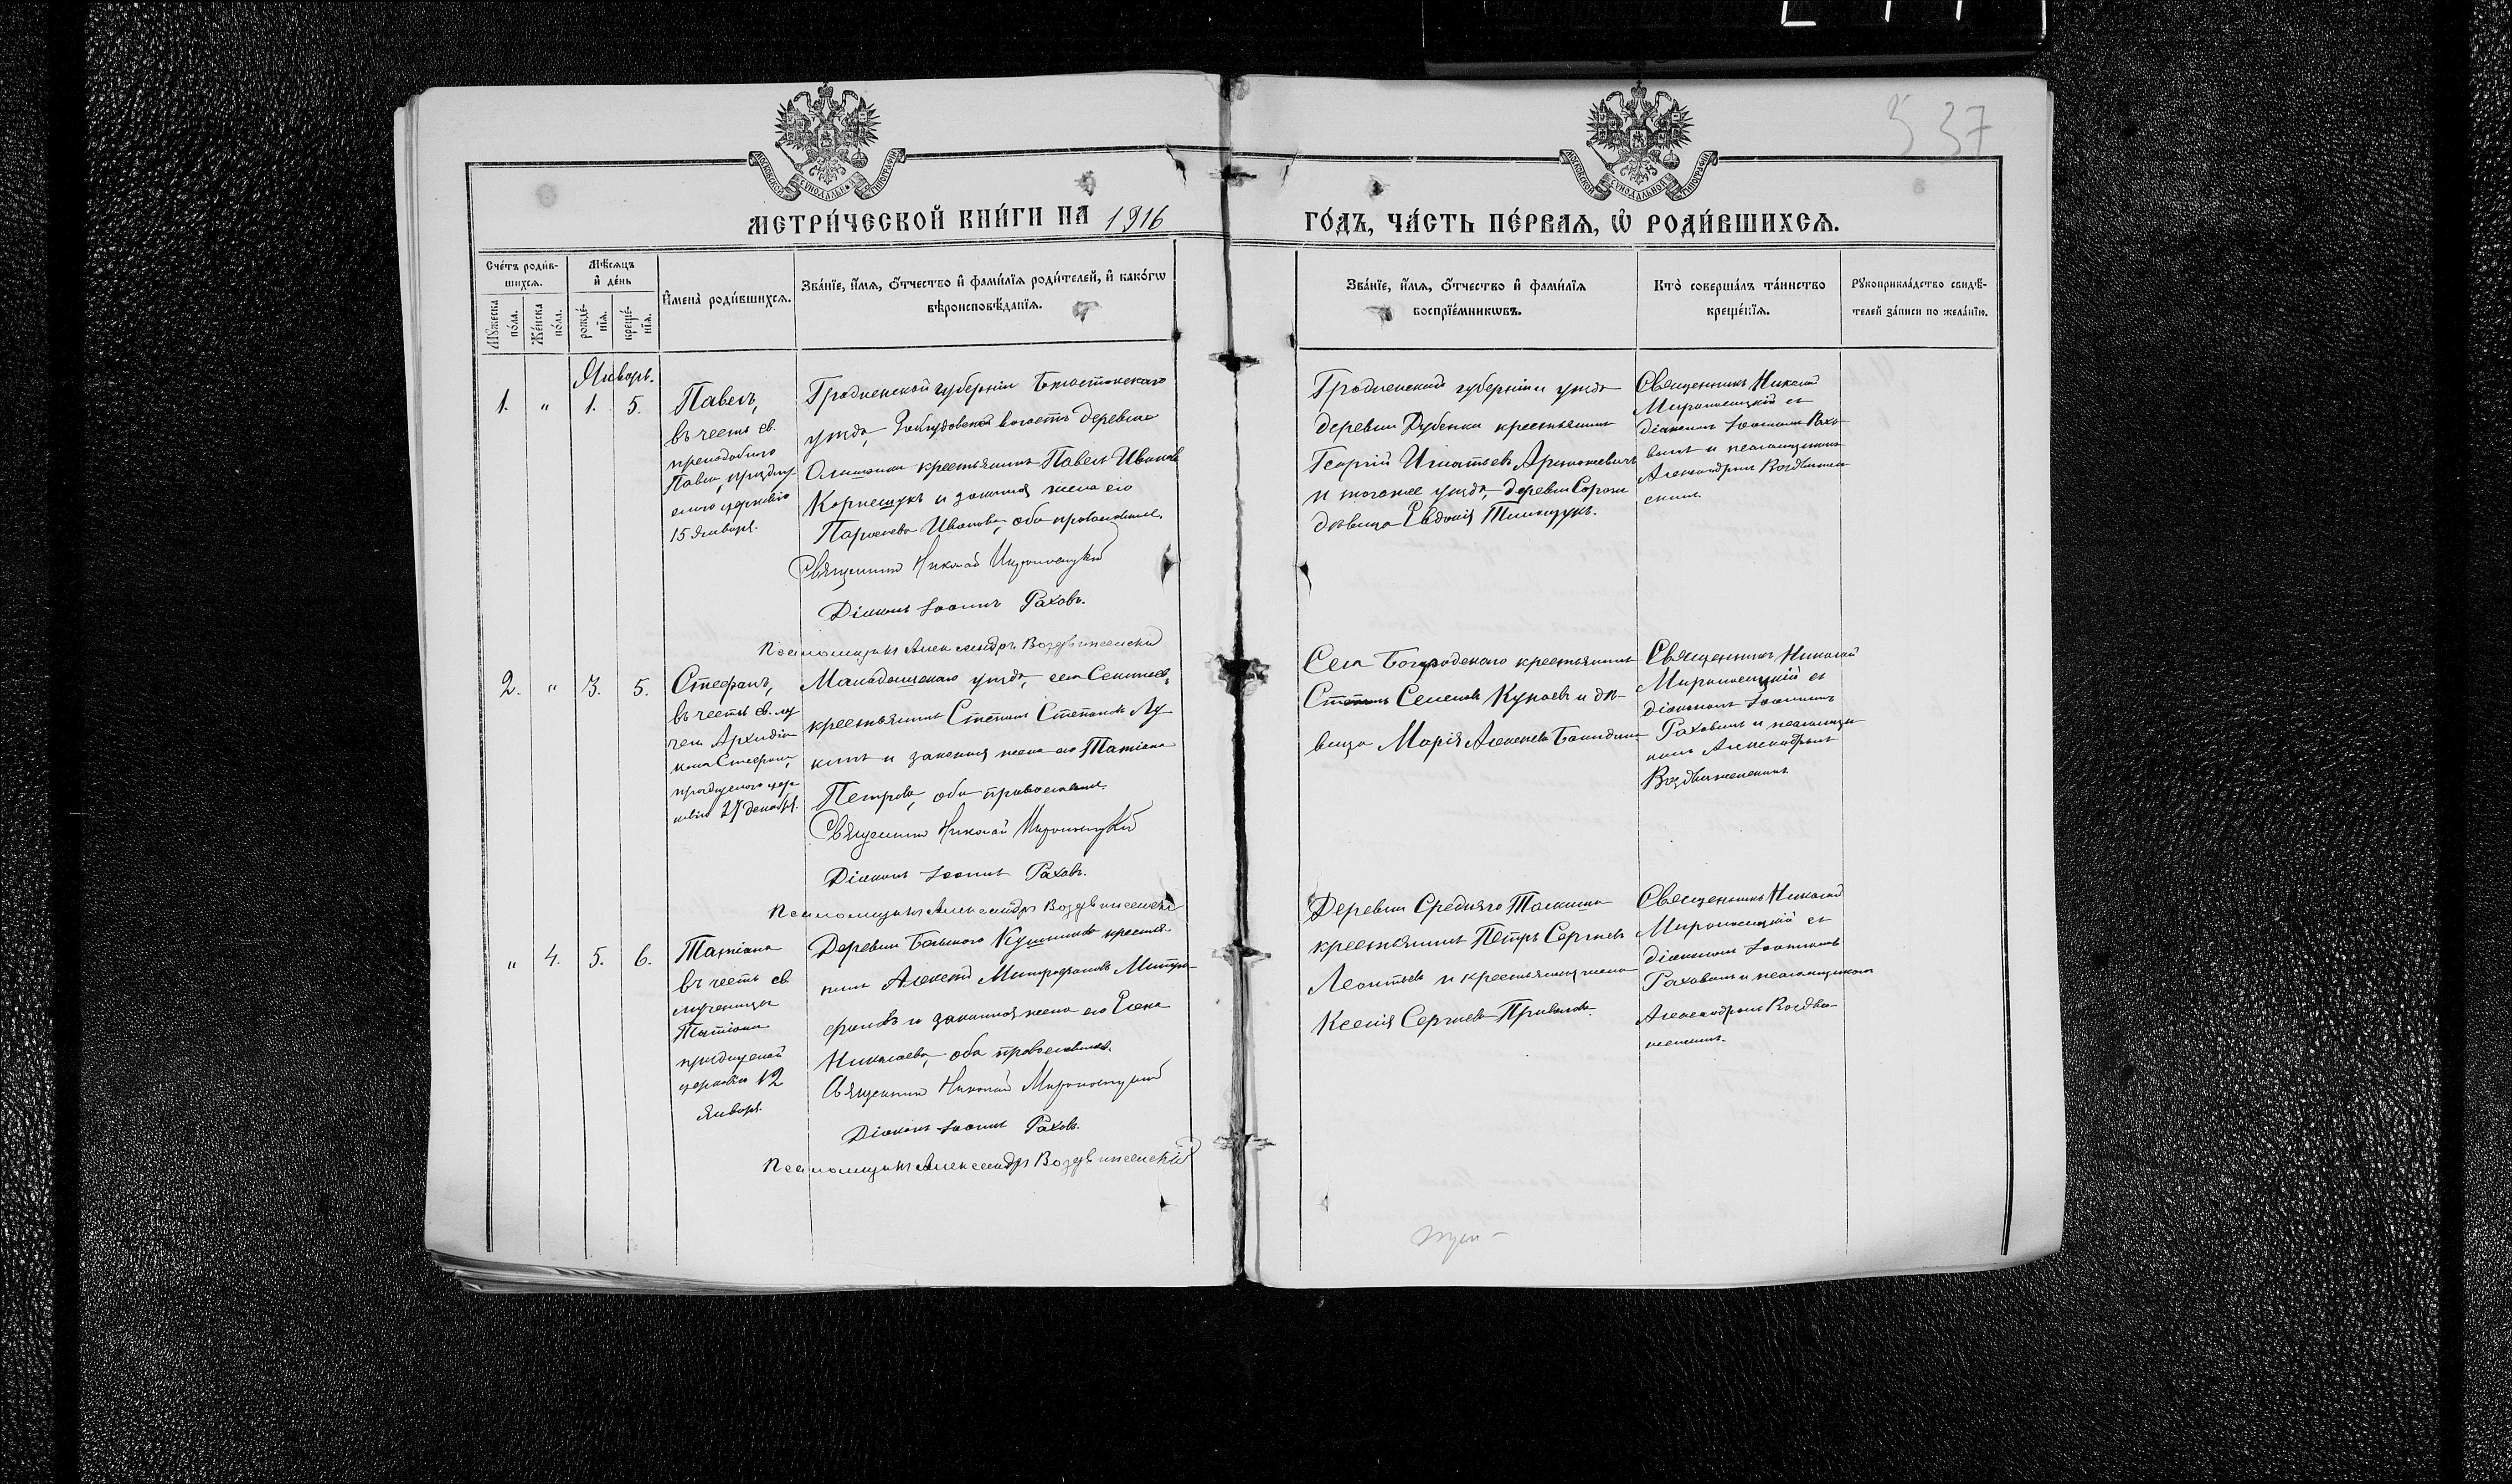 537
МОСКОВСКОЙ СѴНОДАЛЬНОЙ ТИПОГРАФІИ
МОСКОВСКОЙ СѴНОДАЛЬНОЙ ТИПОГРАФІИ
МЕТРИ́ЧЕСКОЙ КНИ́ГИ НА 1916
ГО́ДЪ, ЧА́СТЬ ПЕ́РВАЯ, Ѡ РОДИ́ВШИХСѦ.
Сче́тъ роди́в-
шихсѧ.
Мꙋжеска по́ла.
Же́нска по́ла.
Мѣ́сѧцъ
и҆ де́нь
рожде́-
нїѧ.
креще́-
нїѧ.
И҆мена̀ роди́вшихсѧ.
Зва́нїе, и҆́мѧ, ѻ҆́тчество и҆ фами́лїѧ роди́телей, и҆ како́гѡ
вѣроисповѣ́данїѧ.
Зва́нїе, и҆́мѧ, ѻ҆́тчество и҆ фами́лїѧ
воспрїе́мникѡвъ.
Кто̀ соверша́лъ та́инство
креще́нїѧ.
Рꙋкоприкла́дство свидѣ́-
телей за́писи по жела́нїю.
Январь.
1. " 1. 5.
Павелъ,
въ честь св.
преподобнаго
Павла, празднуе
емаго церковію
15 Января.
Гродненской губерніи Бѣлостокскаго
уѣзда, волость деревни
крестьянинъ Павелъ Ивановъ
Корнещукъ и законная жена его
Параскева Иванова, оба православные.
Священникъ Николай Мироносицкій
Діаконъ Іоаннъ Раховъ.
Псаломщикъ Александръ Воздвиженскій
Гродненской губерніи уѣзда
деревни Дубенки крестьянинъ
Георгій Игнатьевъ
и тогоже уѣзда, деревни
дѣвица Евдокія
Священникъ Николай
Мироносицкій съ
діакономъ Іоанномъ Рахо-
вымъ и псаломщикомъ
Александромъ Воздвижен
скимъ.
2. " 3. 5.
Стефанъ,
въ честь св. му
чен. Архидіа
кона Стефана,
празднуемаго цер
ковію 27 декабря.
Мамадышскаго уѣзда, села
крестьянинъ Степанъ Степановъ Лу
кинъ и законная жена его Татіана
Петрова, оба православные.
Священникъ Николай Мироносицкій
Діаконъ Іоаннъ Раховъ.
Псаломщикъ Александръ Воздвиженскій
Села Богородскаго крестьянинъ
Степанъ Семеновъ Кунаевъ и дѣ-
вица Марія Алексѣева
Священникъ Николай
Мироносицкій съ
діакономъ Іоанномъ
Раховымъ и псаломщи
комъ Александромъ
Воздвиженскимъ
" 4. 5. 6.
Татіана
въ честь св.
мученицы
Татіаны
празднуемой
церковію 12
Января.
Деревни Большого Кушника крестья-
нинъ Алексѣй Митрофановъ Митро-
фановъ и законная жена его Елена
Николаева, оба православные.
Священникъ Николай Мироносицкій
Діаконъ Іоаннъ Раховъ.
Псаломщикъ Александръ Воздвиженскій
Деревни Средняго
крестьянинъ Петръ Сергѣевъ
Леонтьевъ и крестьянская жена
Ксенія Сергѣева Привалова.
Священникъ Николай
Мироносицкій съ
діакономъ Іоанномъ
Раховымъ и псаломщикомъ
Александромъ Воздви-
женскимъ.